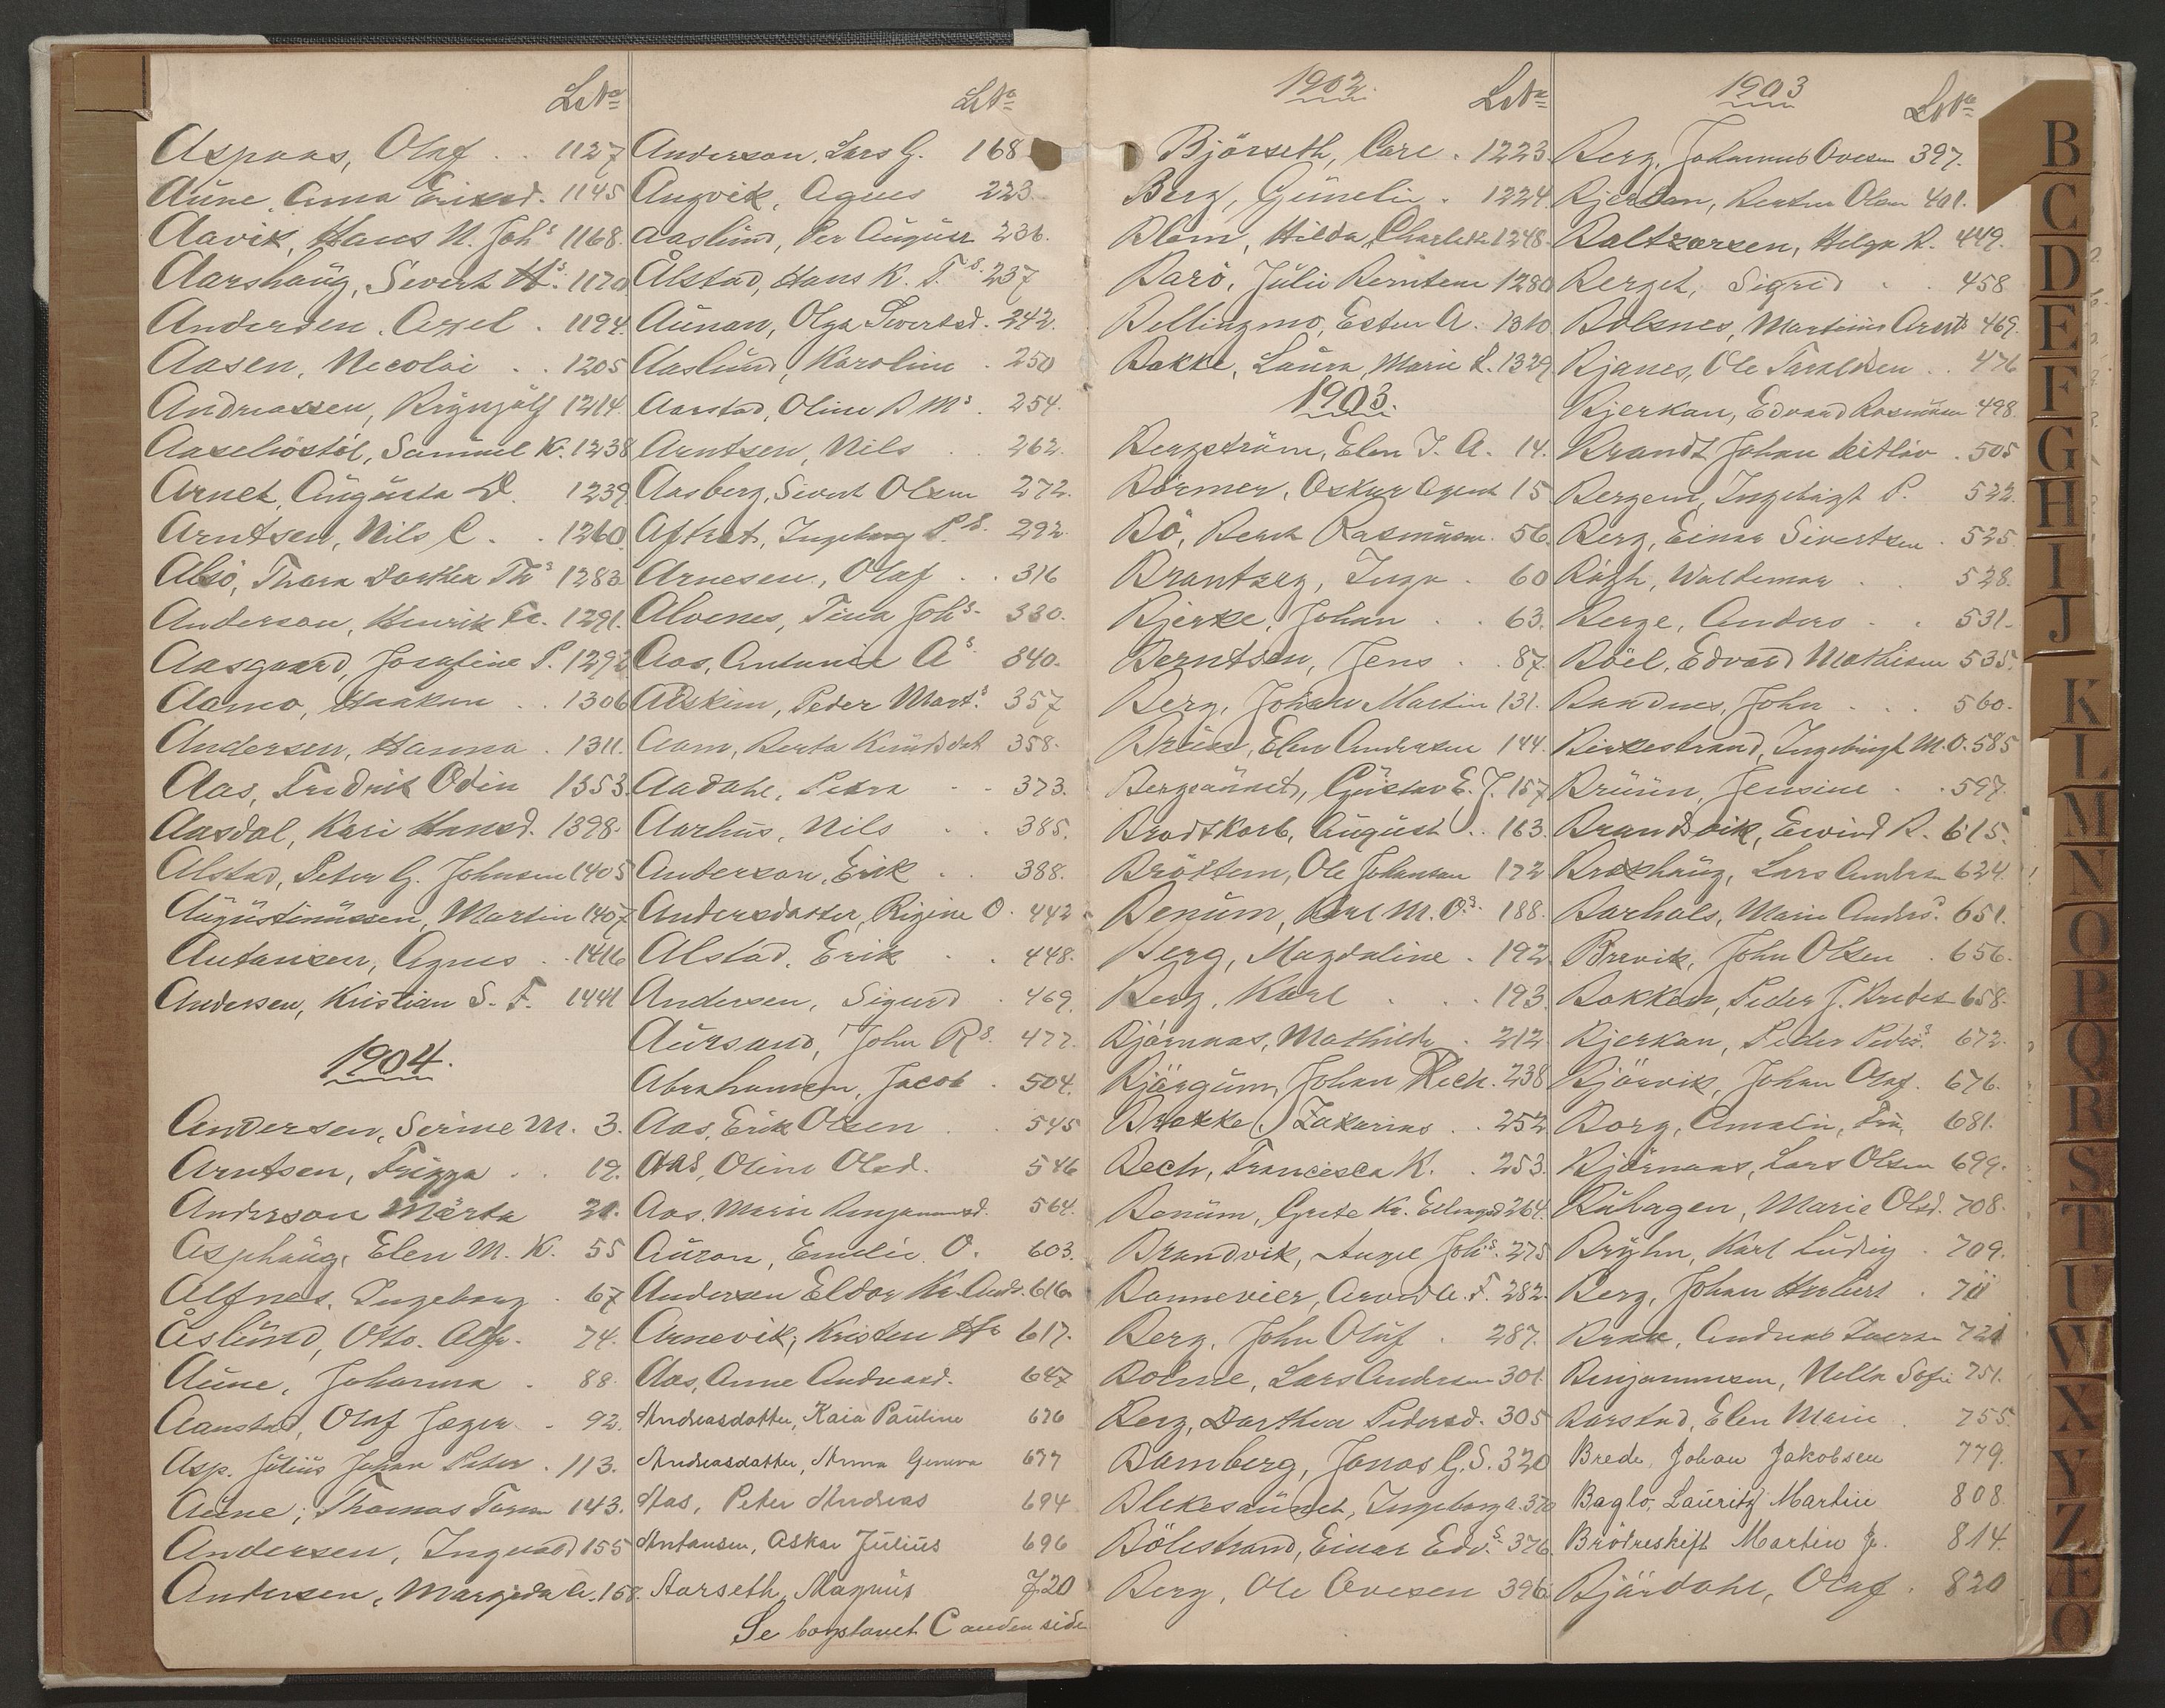 L. Nº
Aspaas, Olaf . . 1127
Aune, Anna Eriksd. 1145
Aavik, Hans N. Johs 1168.
Aarshaug, Sivert Hs. 1170
Andersen, Axel . 1194.
Aasen, Nicolai . . 1205
Andreassen, Brynjolf 1214.
Samuel K. 1238
Arnet, Augusta D. 1239
Arntsen, Nils C. . 1260.
Alsö, Thora Dorthea Ths 1283
Anderson, Henrik Fr. 1291.
Aasgaard, Josefine P. 1292
Aamo, Haakon . . 1306
Andersen, Hanna . 1311.
Aas, Fredrik Odin 1353.
Aasdal, Kari Hansd. 1398.
Alstad, Peter G. Johnsen 1405
Augustinussen, Martin 1407
Antonisen, Agnes . . 1416
Andersen, Kristian S. F. 1441
1904.
Andersen, Serine M. 3.
Arntsen, Frigga . . 19.
Anderson Märta 21.
Asphaug, Elen M. K. 55
Alfnes, Ingeborg . 67
Åslund, Otto. Alfr. 74.
Aune, Johanna . 88.
Aanstad, Olaf Jæger . 92.
Asp, Julius Johan Peter . 113.
Aune, Thomas 143.
Andersen, Ingvald 155
Andersen, Margreda A. 158.
L. Nº
Anderson, Lars G. 168
Angvik, Agnes 223
Aaslund, Per August 236.
Ålstad, Hans K. T.s. 237
Aunan, Olga Sivertsd. 242.
Aaslund, Karoline . 250
Aarstad, Oline B Ms. 254.
Arntsen, Nils . 262.
Aasberg, Sivert Olsen 272.
Aftret, Ingeborg P.s. 292.
Arnesen, Olaf . . 316
Alvenes, Tina Johs. 330.
Aas, Antonie As. 340.
Peder Mart.s 357
Aam, Berta Knudsdat 358.
Aadahl, Petra . . 373.
Aarhus, Nils . . 385.
Anderson, Erik . . 388.
Andersdatter, Rigine O. 442
Alstad, Erik . . 448.
Andersen, Sigurd . 469.
Aursand, John Rs. 477.
Abrahamsen, Jacob . 504.
Aas, Erik Olsen . 545
Aas, Oline Olsd. 546
Aas, Marie Benjaminsd. 564.
Auran, Emelie O. 603.
Andersen Eldor Kr. Andr. 616.
Arnevik, Kristen Hs 617.
Aas, Anne Andreasd. 647
Andreasdatter, Kaia Pauline 676
Andreasdatter, Anna Geneva 677
Aas, Peter Andreas 694
Antonsen, Oskar Julius 696
Aarseth, Magnus 720
Se bogstavet C anden side
1902.
L. Nº
Björseth, Carl . 1223.
Berg, Gunelie . 1224.
Blom, Hilda Charlotte 1248.
Barö, Julie Berntsen 1280
Bellingmo, Ester A. 1310
Bakke, Laura Marie L. 1329
1903.
Bergström, Elen J. A. 14.
Börmer, Oskar Agent 15
Bö, Bernt Rasmussen. 56.
Brantzeg, Inga . 60
Bjerke, Johan . . 63.
Berntsen, Jens . . 87.
Berg, Johan Martin 131.
Bruun, Elen Andersen 144.
Bergsaunet, Gustav E. J. 157
Brodtkorb, August . . 163.
Bröttem, Ole Johansen 172
Benum, Karl M. O.s. 188.
Berg, Magdaline . 192.
Berg, Karl . . . 193.
Björnnas, Mathilde . 212.
Bjørgum, Johan 238
Brekke, Zakarias . . 252
Bech, Francesca K. . 253.
Bonum, Grete Kr. Ellingsd 264.
Brandvik, Angel Johs. 275
Bonnevier, Arvid A. F. 282.
Berg, John Oluf . 287.
Bolme, Lars Andersen 301.
Berg, Dorthea Pedersd. 305
Bamberg, Jonas G. S. 320
Blekesaunet, Ingeborg A. 370
Bölestrand, Einar Edv.s. 376.
Berg, Ole Ovesen 396
1903
L. Nº
Berg, Johannes Ovesen 397.
Bjerkan, Olsen 401.
Baltzersen, Helga R. 449.
Berget, Sigrid . . 458
Bolsnes, Martinus Arnts 469.
Bjanes, Ole Taraldsen . . 476
Bjerkan, Edvard Rasmussen 498.
Brandt Johan Ditlöv . 505
Bergem, Ingebrigt P. 522.
Berg, Einar Sivertsen . 525
Bögh, Waldemar . . 528.
Berge, Anders . . 531.
Böel, Edvard Mathisen 535.
Bandnes, John . . . 560.
Birkestrand, Ingebrigt M. O. 585
Bruun, Jensine . . 597.
Brandvik, Eivind R. 615.
Brekhaug, Lars Andersen 624.
Barhals, Marie Anders. 651.
Brevik, John Olsen . 656.
Bakken, Peder J. 658.
Bjerkan, Peder Peders. 672.
Bjørvik, Johan Olaf. 676.
Borg, Amalie, Fru, 681.
Björnaas, Lars Olsen 699.
Buhagen, Marie Olsd. 708.
Bryhn, Karl Ludvig . 709.
Berg, Johan Herbert . 711
Brox, Andreas Iversen 721
Benjaminsen, Nella Sofie 751.
Barstad, Elen Marie . 755.
Brede, Johan Jakobsen 779.
Baglo, Lauritz Martin 808
Brödreskift Martin J. 814.
Bjärdahl, Olaf . 820
B
C
D
E
F
G
H
I
J
K
L
M
N
O
P
Q
R
S
T
U
W
X
Y
Z
Æ
Ø